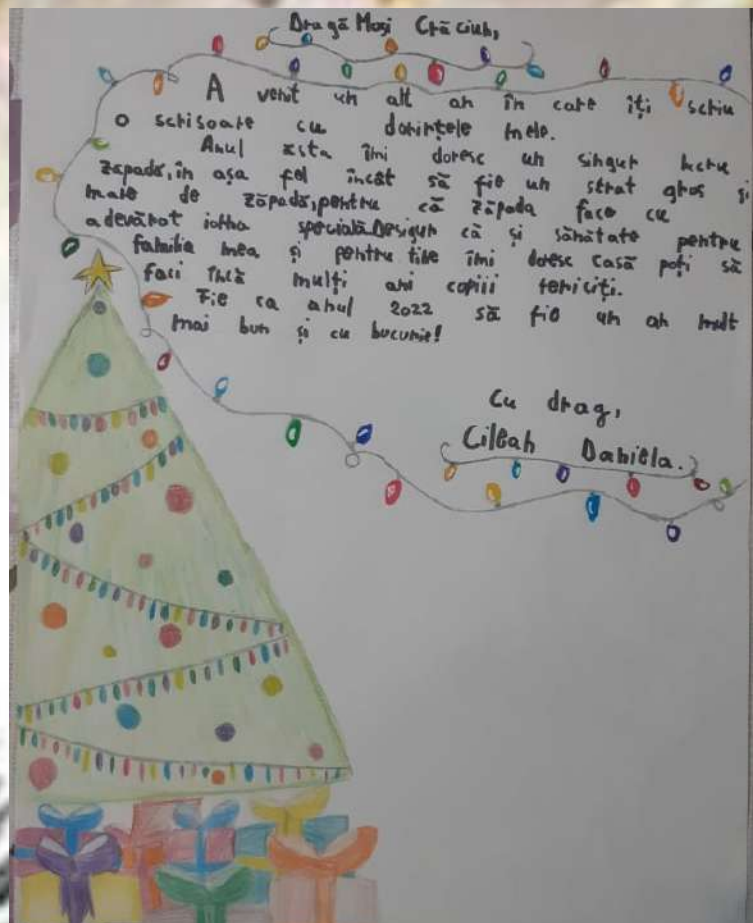 Dragă Moși Crăciun,
A venit un alt an în care îți scriu
o scrisoare cu dorințele mele.
Anul ăsta îmi doresc un singur lucru
zăpadă, în așa fel încât să fie un strat gros și
mare de zăpadă, pentru că zăpada face cu
adevărat iarna specială. Desigur că și sănătate pentru
familia mea și pentru tine îmi doresc casă poți să
faci încă mulți ani copiii fericiți.
Fie ca anul 2022 să fie un an mult
mai bun și cu bucurie!
Cu drag,
Cilean Daniela.